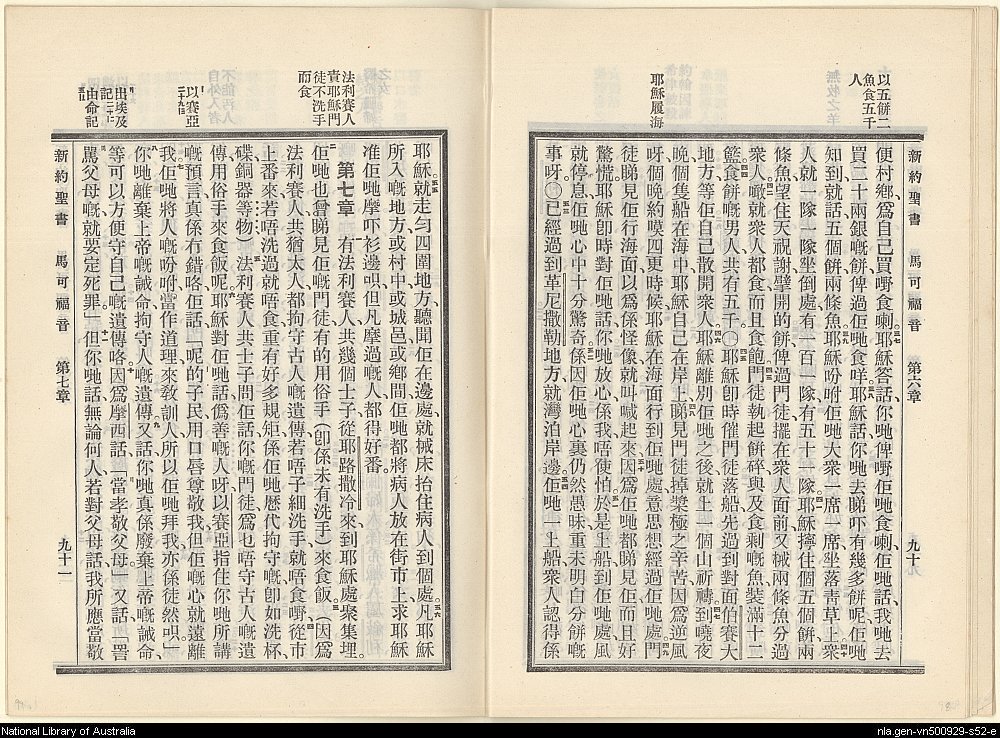 新約聖書 馬可福音 第六章 九十
以五餅二
魚食五千
人
耶穌履海
便村鄉爲自己買嘢食喇、耶穌答話、你哋俾嘢佢哋食喇、佢哋話、我哋去
買二十兩銀嘅餅俾過佢哋食咩、耶穌話、你哋去睇吓有幾多餅呢、佢哋
知到就話、五個餅兩條魚、耶穌吩咐佢哋大衆、一席一席坐落青草上、衆
人就一隊一隊坐倒處、有一百一隊、有五十一隊、耶穌擰住個五個餅、兩
條魚、望住天祝謝、擘開的餅俾過門徒擺在衆人面前、又械兩條魚分過
衆人、噉就衆人都食而且食飽、門徒執起餅碎、與及食剩嘅魚、裝滿十二
籃、食餅嘅男人共有五千。〇耶穌卽時催門徒落船、先過到對面伯賽大
地方、等佢自己散開衆人、耶穌離別佢哋之後、就上一個山祈禱、到曉夜
晚、個隻船在海中、耶穌自己在岸上、睇見門徒掉槳極之辛苦、因爲逆風
呀、個晚約嘆四更時候、耶穌在海面行到佢哋處、意思想經過佢哋、門
徒睇見佢行海面、以爲係怪像、就叫喊起來、因爲佢哋都睇見佢、而且好
驚慌、耶穌卽時對佢哋話、你哋放心、係我、唔使怕、於是上船到佢哋處、風
就停息、佢哋心中十分驚奇、係因佢哋心裏仍然愚昧、重未明白分餅嘅
事呀。〇已經過到革尼撒勒地方、就灣泊岸邊、佢哋一上船、衆人認得係
法利賽人
責耶穌門
徒不洗手
而食
以賽亞
出埃及
記
申命記
耶穌、就走勻四圍地方、聽聞佢在邊處、就械床抬住病人到個處、凡耶穌
所入嘅地方、或村中、或城邑、或鄉間、佢哋都將病人放在街市上、求耶穌
准佢哋摩吓衫邊呮、但凡摩過嘅人都得好番。
第七章 有法利賽人、共幾個士子、從耶路撒冷來到耶穌處聚集埋、
佢哋也曾睇見佢嘅門徒、有的用俗手（卽係未有洗手）來食飯、（因爲
法利賽人、共猶太人、都拘守古人嘅遺傳、若唔子細洗手就唔食嘢、從市
上番來、若唔洗過就唔食、重有好多規矩、係佢哋歴代拘守嘅、卽如洗杯、
碟、銅器等物）法利賽人共士子問佢話、你嘅門徒爲乜唔守古人嘅遺
傳、用俗手來食飯呢、耶穌對佢哋話、僞善嘅人呀、以賽亞指住你哋所講
嘅預言、眞係冇錯咯、佢話、「呢的子民、用口唇尊敬我、但佢嘅心就遠離
我、佢哋將人嘅吩咐當作道理來敎訓人、所以佢哋拜我、亦係徒然呮」。
你哋離棄上帝嘅誡命、拘守人嘅遺傳、又話、你哋眞係廢棄上帝嘅誡命、
等可以方便守自己嘅遺傳咯、因爲摩西話、「當孝敬父母」、又話、「詈
罵父母嘅、就要定死罪」、但你哋話、無論何人、若對父母話、我所應當敬
新約聖書 馬可福音 第七章 九十一
National Library of Australia
nla.gen-vn500929-s52-e